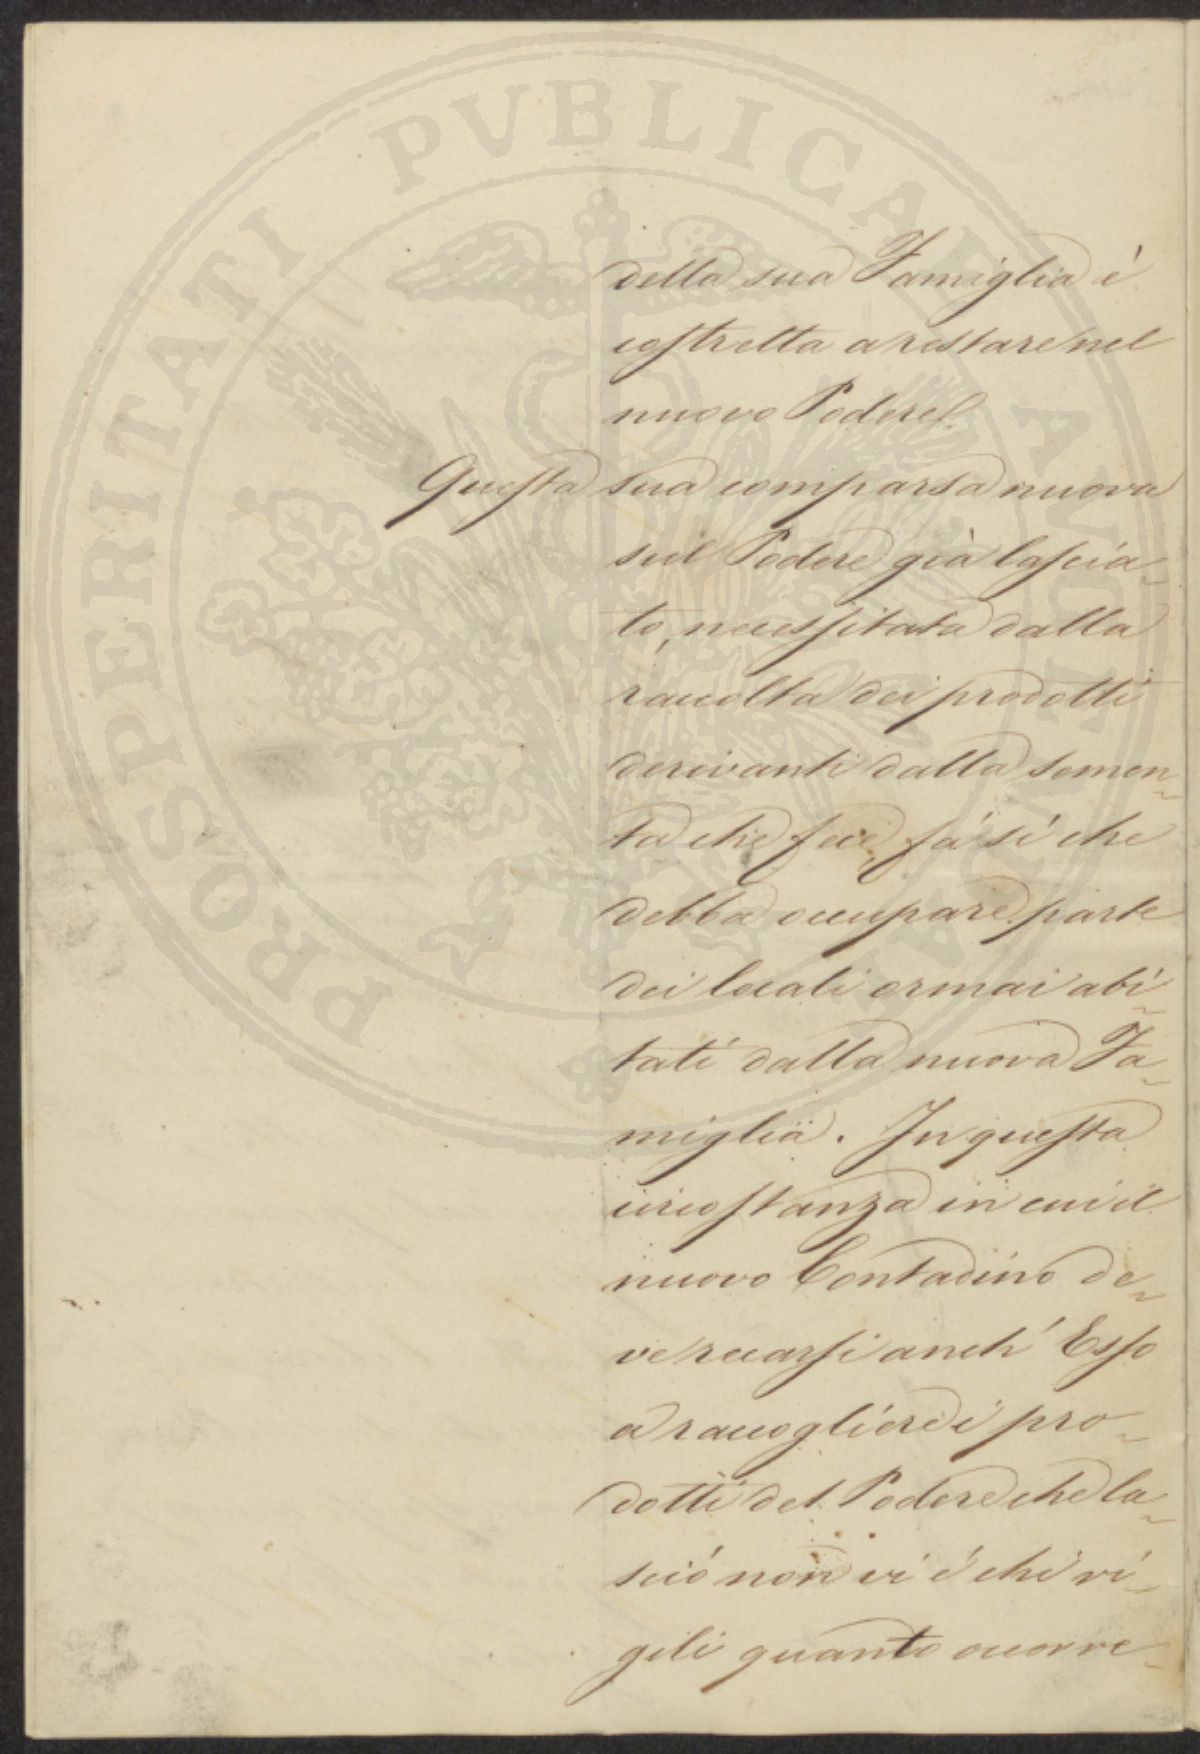 PROSPERITATI PVBLICAE AVGENDAE
della sua Famiglia é
costretta a restare nel
nuovo Podere.
Questa sua comparsa nuova
sul Podere già lascia-
to, necessitata dalla
raccolta dei prodotti
derivanti dalla semen-
ta che fece, fá sí che
debba occupare parte
dei locali ormai abi-
tati dalla nuova Fa-
miglia. In questa
circostanza in cui il
nuovo Contadino de-
ve recarsi anch' Esso
a raccogliere i pro-
dotti del Podere che la-
sció non vi é chi vi-
gili quanto occorre-